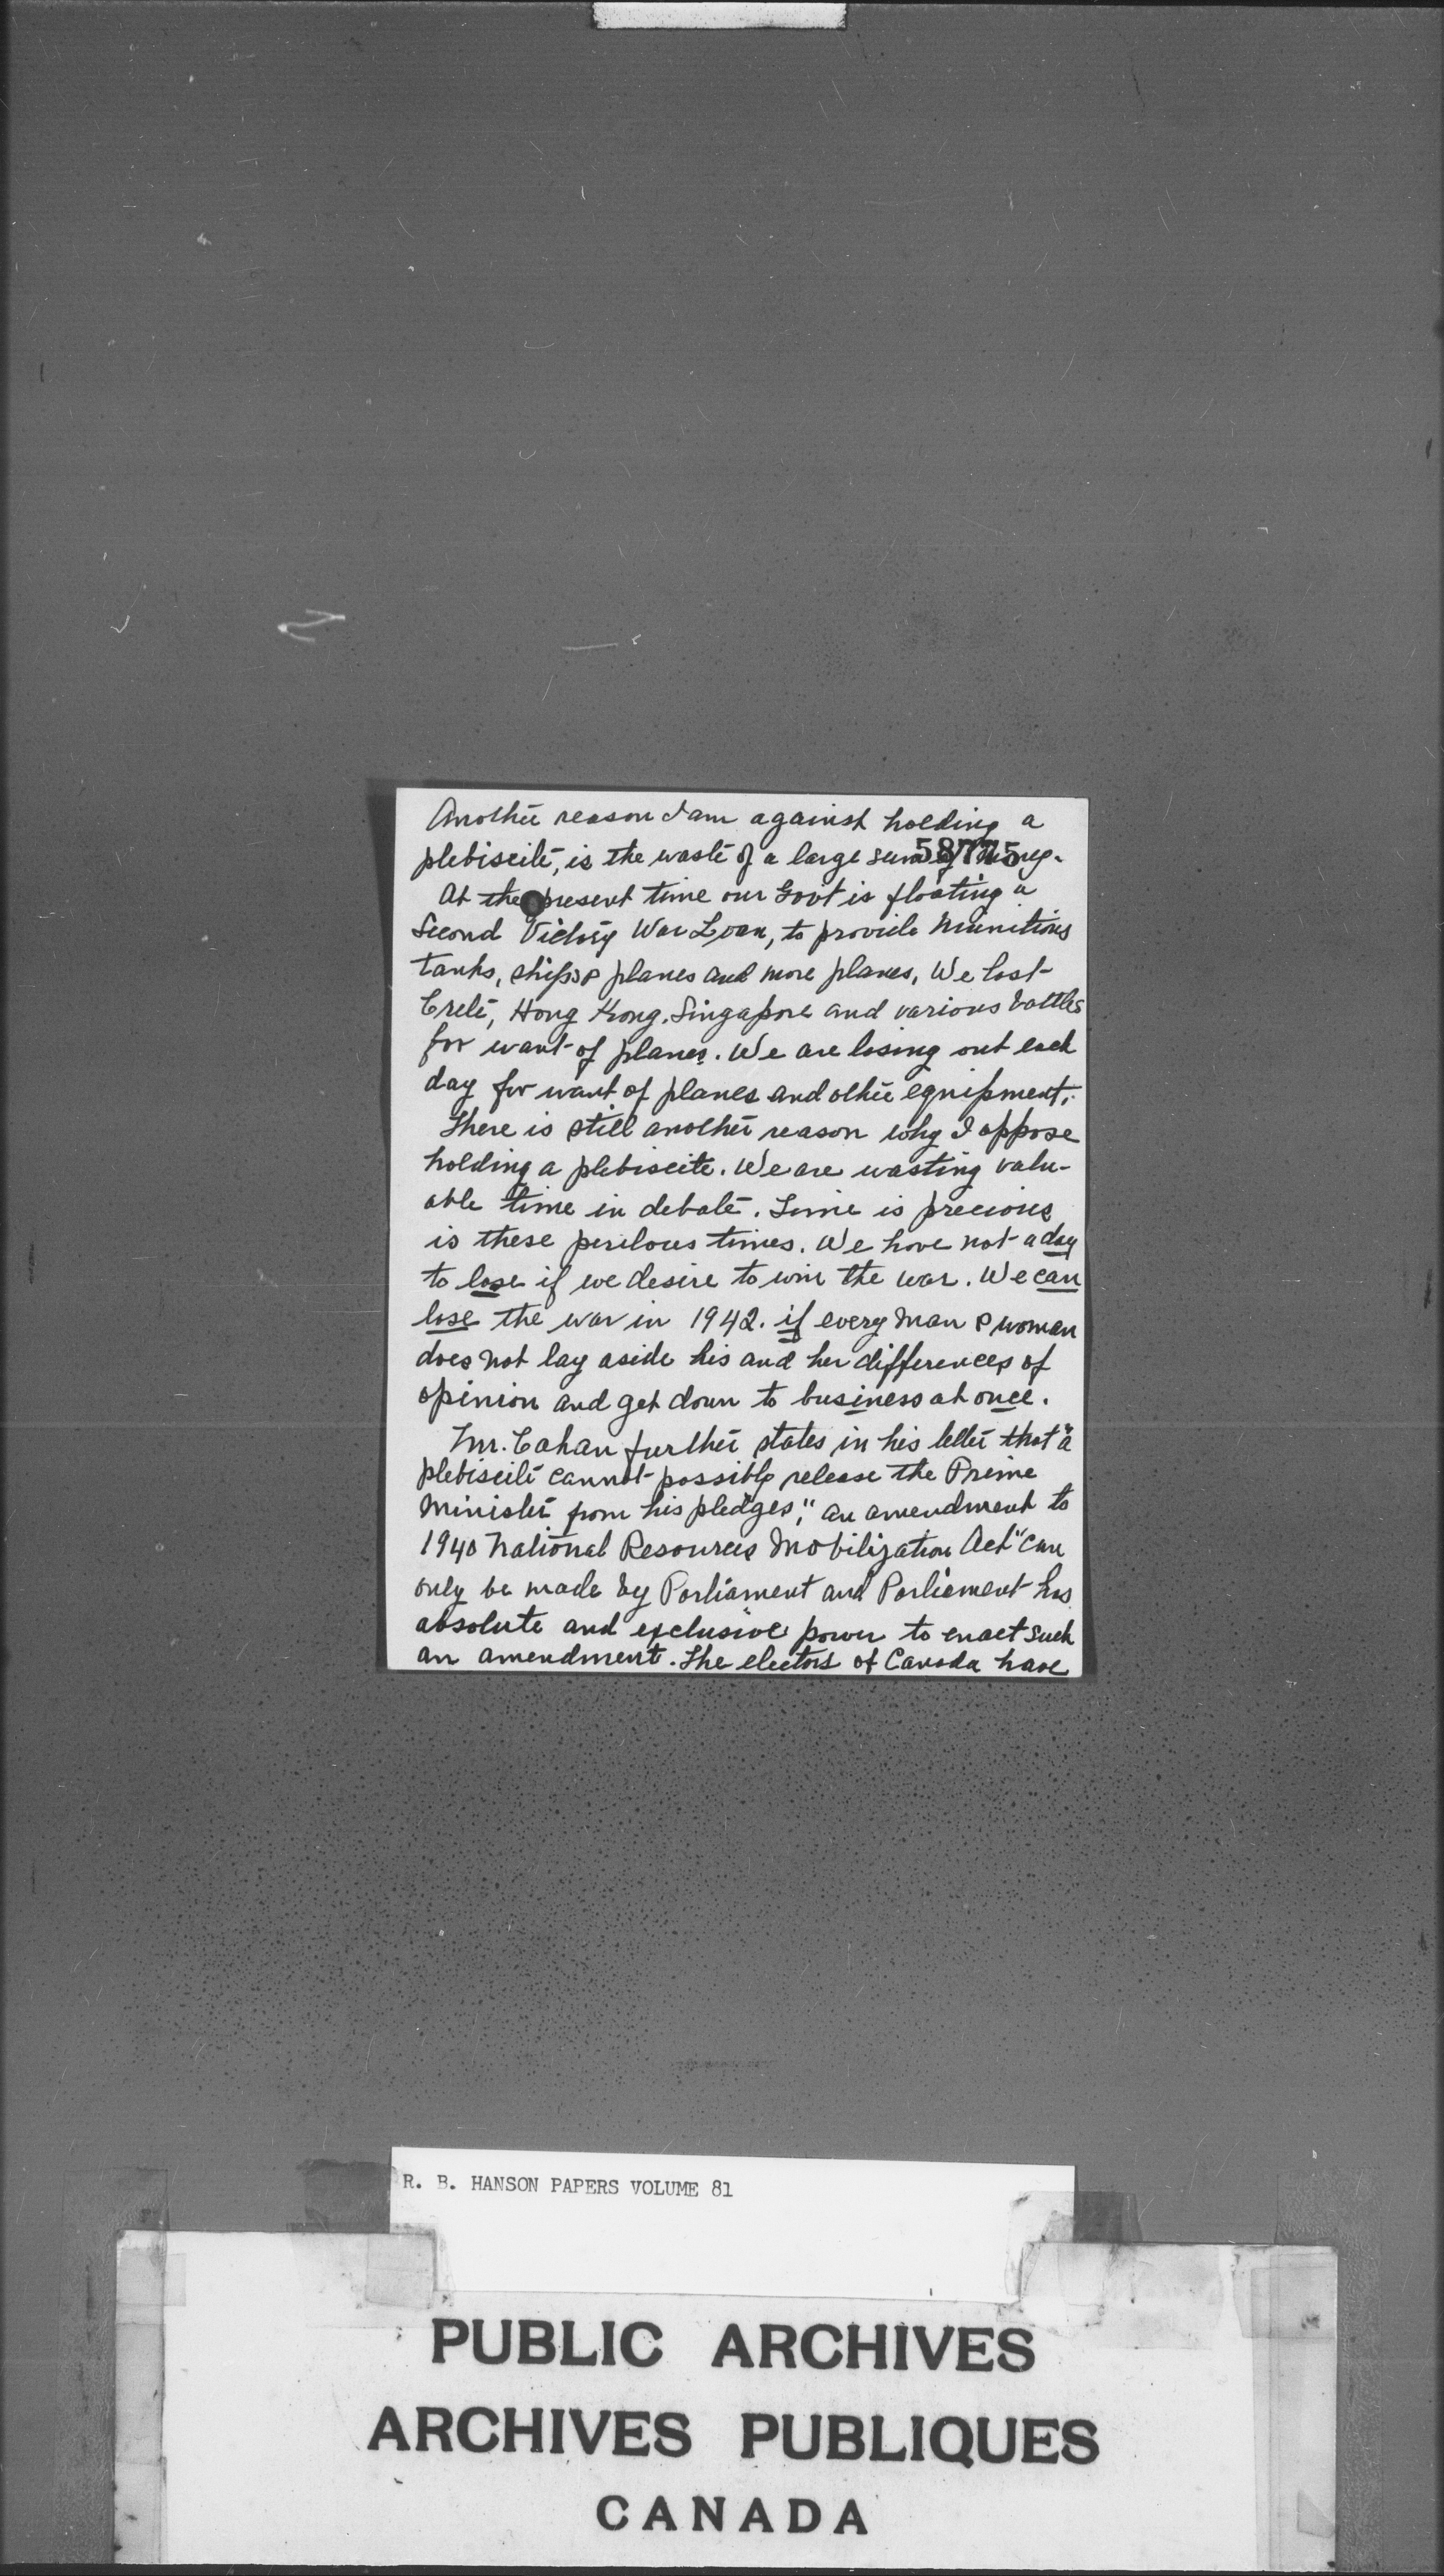 Another reason I am against holding a
plebiscite, is the waste of a large sum of money.
58775
At the present time our Govt is floating a
Second Victory War Loan, to provide munitions
tanks, ships & planes and more planes, We lost
Crete, Hong Kong, Singapore and various battles
for want of planes. We are losing out each
day for want of planes and other equipment.
There is still another reason why I oppose
holding a plebiscite. We are wasting valu-
able time in debate. Time is precious
is these perilous times. We have not a day
to lose if we desire to win the war. We can
lose the war in 1942. if every man & woman
does not lay aside his and her differences of
opinion and get down to business at once.
Mr. Cahan further states in his letter that "a
plebiscite cannot possibly release the Prime
Minister from his pledges," an amendment to
1940 National Resources Mobilization Act "can
only be made by Parliament and Parliament has
absolute and exclusive power to enact such
an amendment. The electors of Canada have
R. B. HANSON PAPERS VOLUME 81
PUBLIC ARCHIVES
ARCHIVES PUBLIQUES
CANADA